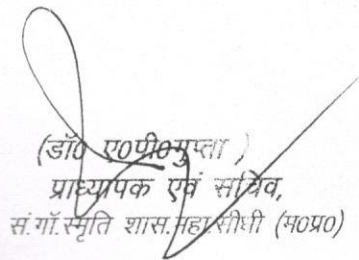 (डॉ0 ए0पी0गुप्ता )
प्राध्यापक एवं सचिव,
सं.गाॅ.स्मृति शास.महा.सीधी (म0प्र0)